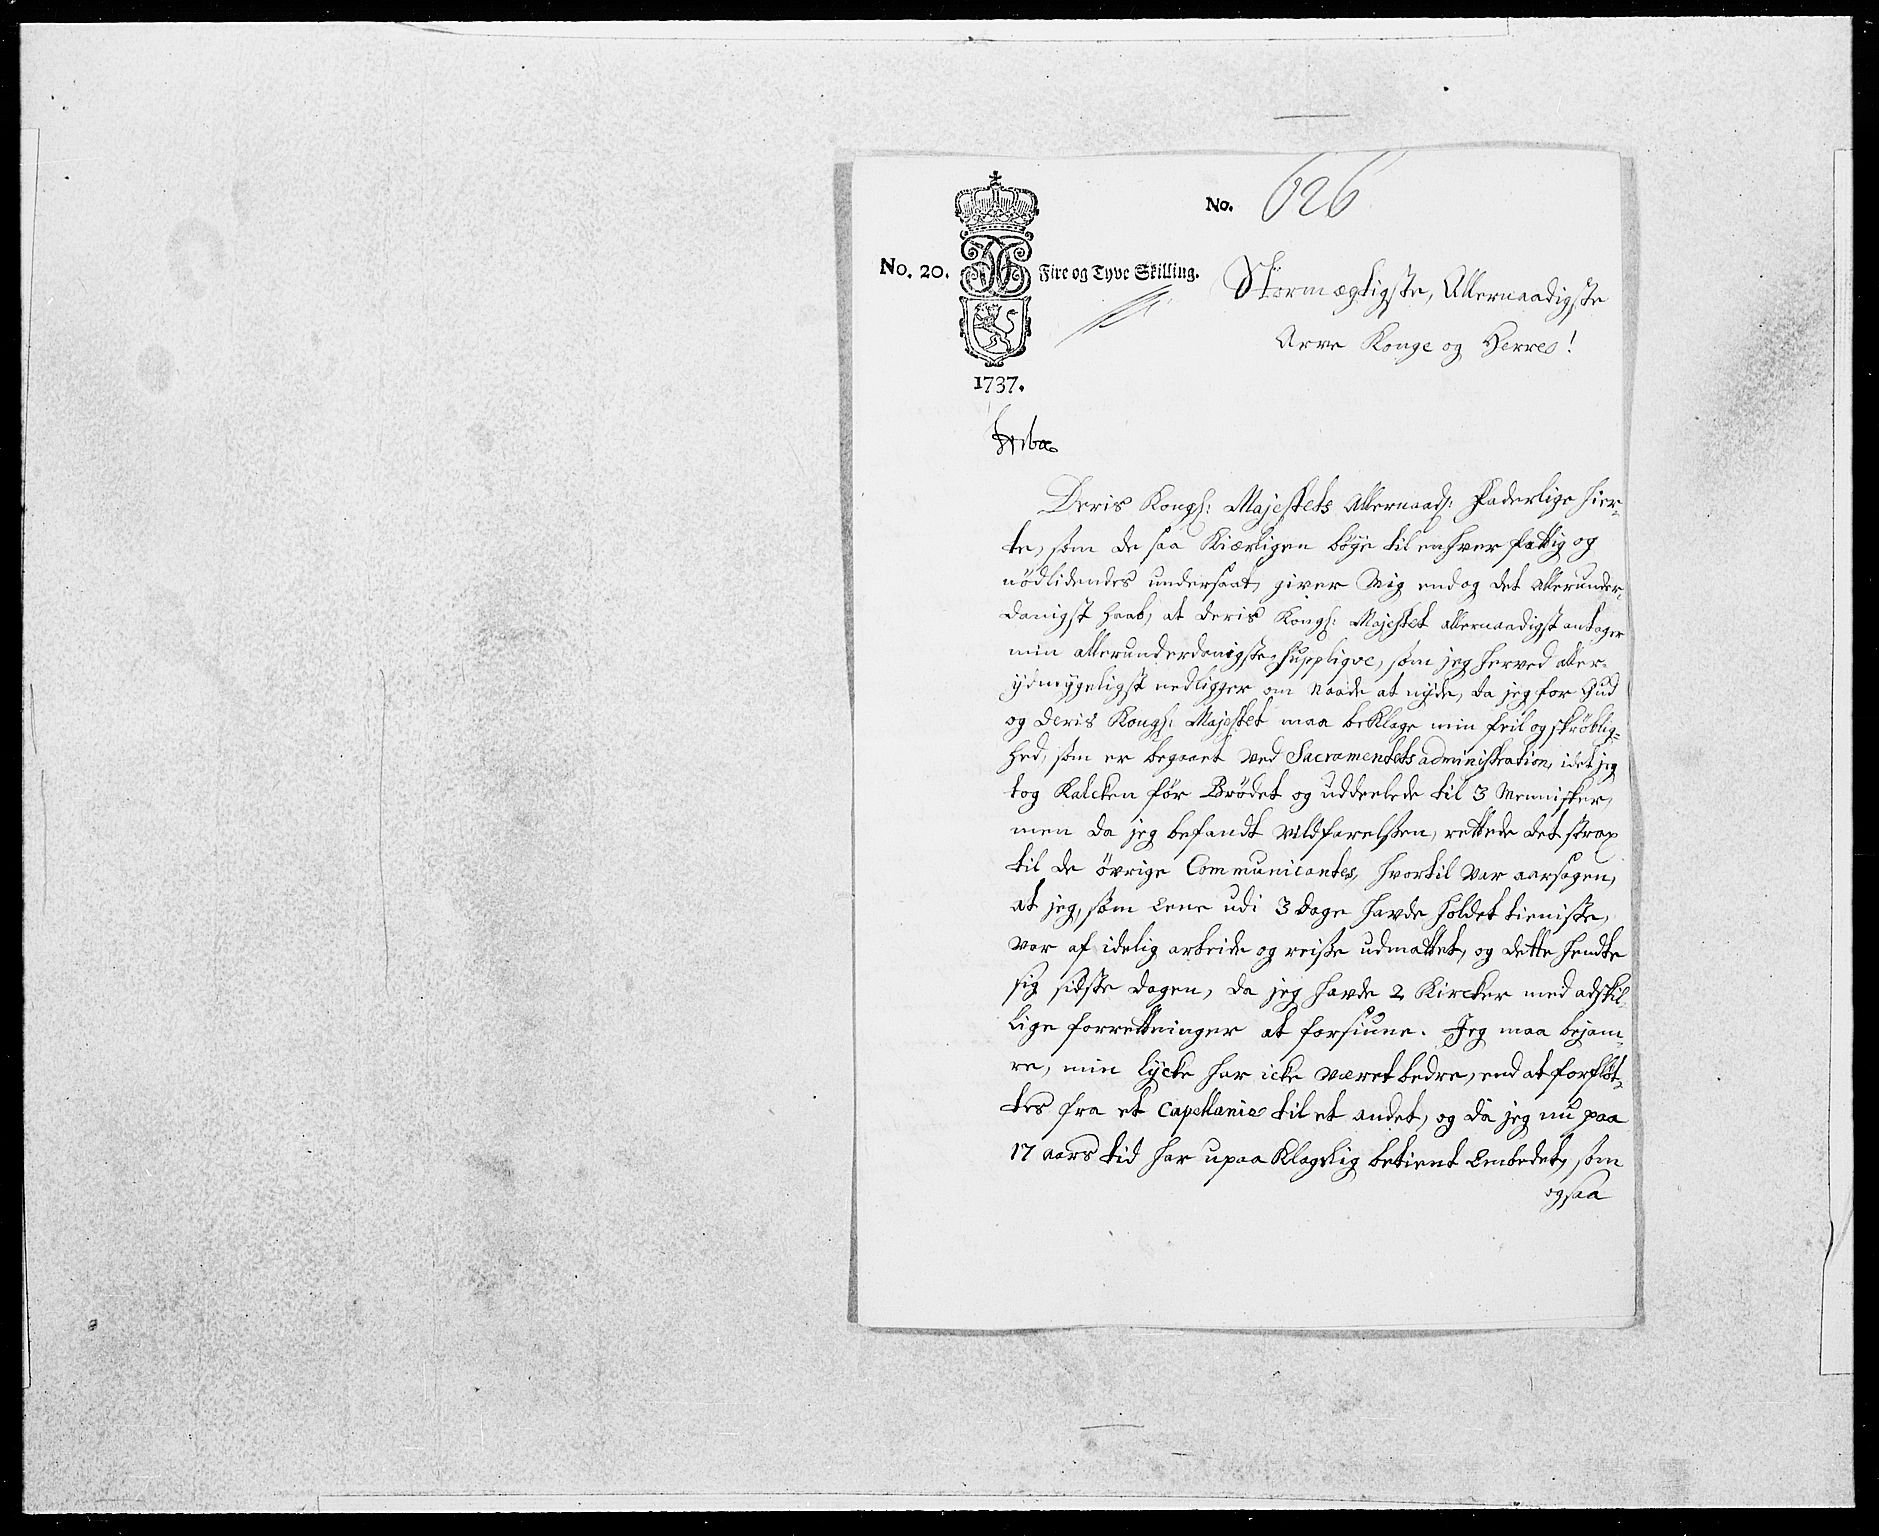 No. 626
No. 20. Fire og Tyve Skilling.
Stormægtigste, Allernaadigste
Arve Konge og Herre!
1737.
Deris Kongl: Majestets Allernaad: Faderlige hier-
te, som de saa Kiærligen böye til enhver fattig og
nödlidendes undersaat, giver Mig endog det allerunder-
danigst Haab, at Deris Kongl: Majestet allernaadigst antager
min allerunderdanigste supplique, som jeg herved aller-
ydmygeligst nedligger om Naade at nyde, da jeg for Gud
og Deris Kongl: Majestet maa beklage min feil og skröblig-
hed, som er begaaet ved Sacramentets administration, idet jeg
tog Kalcken för Brödet og uddeelede til 3 Mennisker,
men da jeg befandt Vildfarelsen, rettede det strax
til de övrige Communicantes, hvortil var aarsagen,
at jeg, som Eene udi 3 Dage havde holdet tieniste,
var af idelig arbeide og reise udmattet, og dette hendte
sig sidste dagen, da jeg havde 2 Kircker med adskil-
lige forrettninger at forsiune. Jeg maa bejam-
re, min lycke har icke været bedre, end at forflöt-
tes fra et Capellanie til et andet, og da jeg nu paa
17 aars tid har upaaklagelig betient Embedet, som
ogsaa